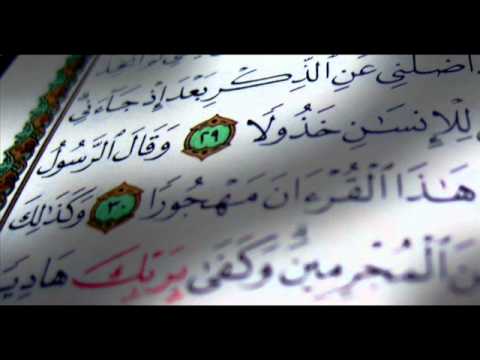 أَضَلَّنِى عَنِ ٱلذِّكْرِ بَعْدَ إِذْ جَآءَنِى
لِلْإِنسَـٰنِ خَذُولًا ٢٩ وَقَالَ ٱلرَّسُولُ
هَـٰذَا ٱلْقُرْءَانَ مَهْجُورًا ٣٠ وَكَذَٰلِكَ
ٱلْمُجْرِمِينَ ۗ وَكَفَىٰ بِرَبِّكَ